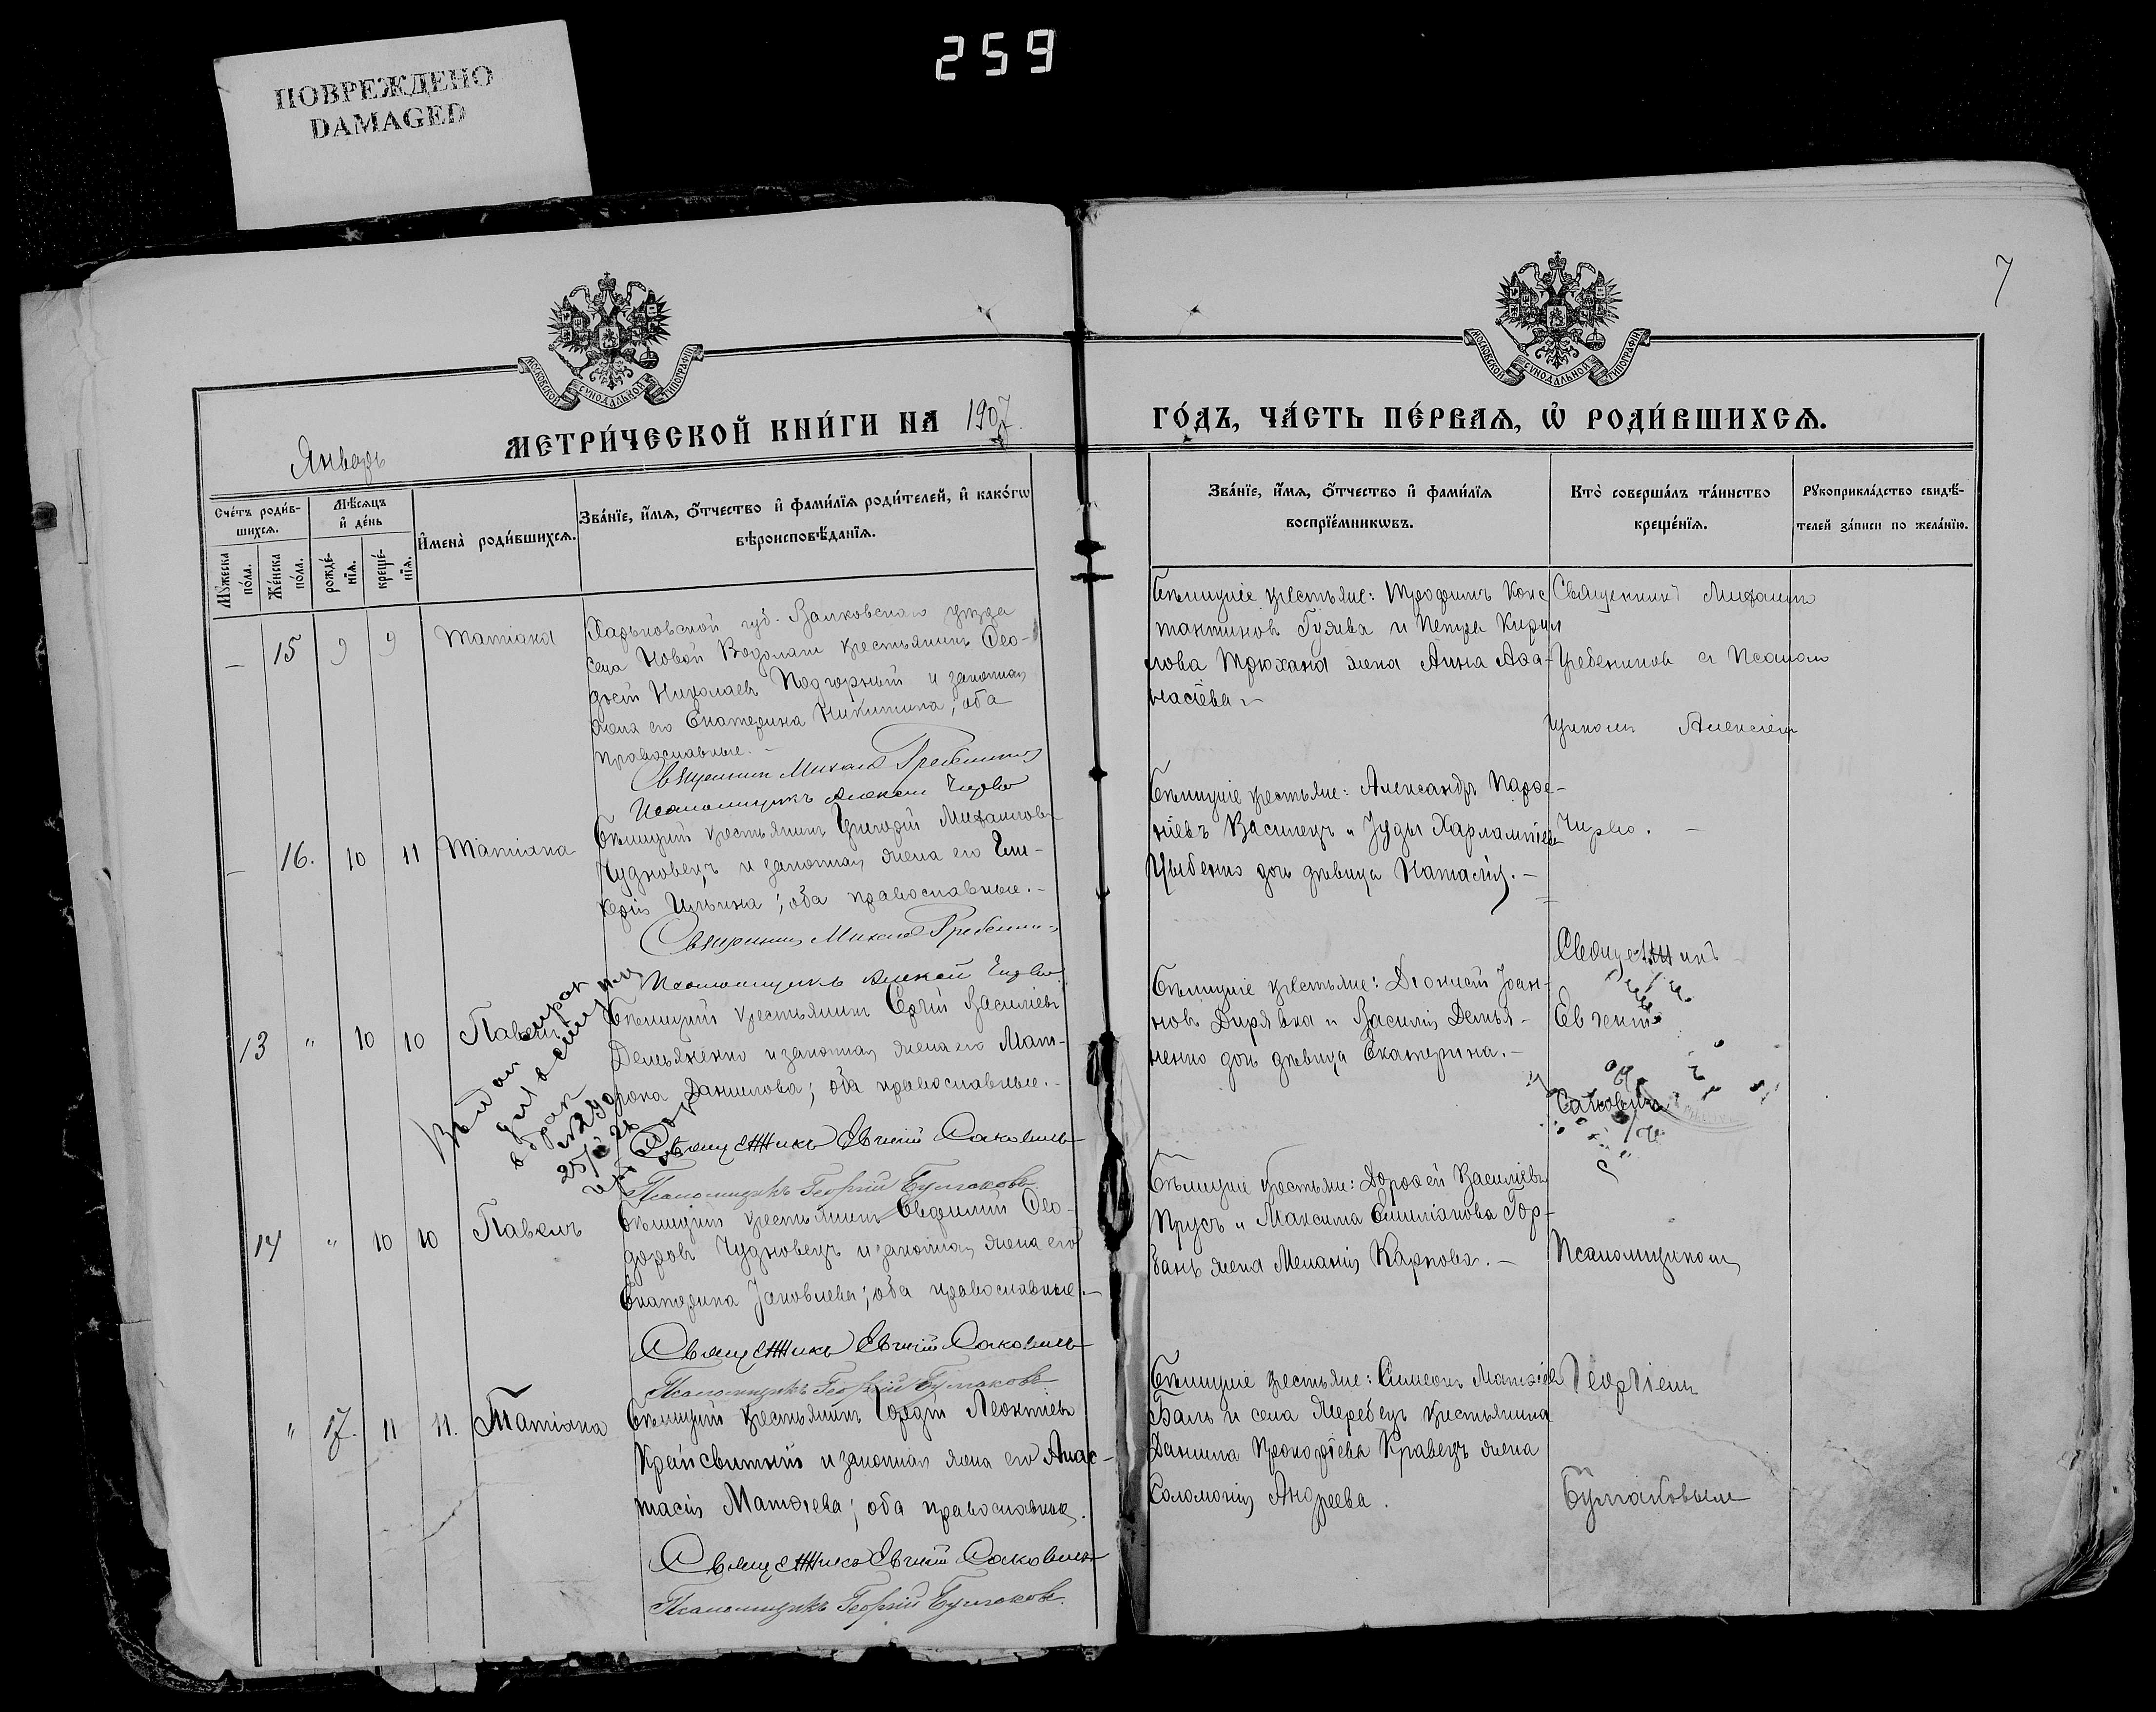 259
ПОВРЕЖДЕНО
DAMAGED
7
МОСКОВСКОЙ СѴНОДАЛЬНОЙ ТИПОГРАФІИ
МОСКОВСКОЙ СѴНОДАЛЬНОЙ ТИПОГРАФІИ
МЕТРИ́ЧЕСКОЙ КНИ́ГИ НА 1907
ГО́ДЪ, ЧА́СТЬ ПЕ́РВАѦ, Ѡ҆ РОДИ́ВШИХСѦ.
Январь
Сче́тъ роди́в-
шихсѧ.
Мѹ́жеска по́ла.
Же́нска по́ла.
Мѣ́сѧцъ
и҆ де́нь
рожде́-
нїѧ.
креще́-
нїѧ.
И҆мена̀ роди́вшихсѧ.
Зва́нїе, и҆́мѧ, ѻ҆́тчество и҆ фами́лїѧ роди́телей, и҆ како́гѡ
вѣроисповѣ́данїѧ.
Зва́нїе, и҆́мѧ, ѻ҆́тчество и҆ фами́лїѧ
воспрїе́мникѡвъ.
Кто̀ соверша́лъ та́инство
креще́нїѧ.
Рѹкоприкла́дство свидѣ́-
телей за́писи по жела́нїю.
— 15 9 9 Татіана
Харьковской губ. Валковскаго уѣзда
села Новой Водолаги крестьянинъ Ѳео-
досій Николаевъ Подгорный и законная
жена его Екатерина Никитина; оба
православные. —
Священникъ Михаилъ Гребенниковъ
Псаломщикъ Алексій Чирво
крестьяне: Трофимъ Конс
тантиновъ Гуляевъ и Петра Кирил
лова Трюхана жена Анна Аѳа-
насіева. —
Священникъ Михаилъ
Гребенниковъ съ Псалом
щикомъ Алексіемъ
Чирво. —
— 16. 10 11 Татіана
крестьянинъ Григорій Михаиловъ
Чудновецъ и законная жена его Гли-
керія Ильина; оба православные. —
Священникъ Михаилъ Гребенниковъ
Псаломщикъ Алексій Чирво
крестьяне: Александръ Парѳе-
ніевъ Василецъ и Іуды Харлампіева
Цыбенко дочь дѣвица Наталія. —
13 " 10 10 Павелъ
крестьянинъ Сергій Василіевъ
Демьяненко и законная жена его Мат-
рона Даніилова; оба православные. —
Священникъ Евгеній Саковичъ
Псаломщикъ Георгій Булгаковъ
крестьяне: Діонисій Іоан-
новъ Дирявка и Василія Демья-
ненко дочь дѣвица Екатерина. —
Священникъ
Евгеній
Саковичъ
14 " 10 10 Павелъ
крестьянинъ Евфимій Ѳео-
доровъ Чудновецъ и законная жена его
Екатерина Іаковлева; оба православные. —
Священникъ Евгеній Саковичъ
Псаломщикъ Георгій Булгаковъ
крестьяне: Дороѳей Василіевъ
Прусъ и Максима Емиліанова Гор-
бань жена Меланія Карпова. —
Псаломщикомъ
" 17. 11 11. Татіана
крестьянинъ Гордій Леонтіевъ
Крайсвитный и законная жена его Анас-
тасія Матѳіева; оба православные.
Священникъ Евгеній Саковичъ
Псаломщикъ Георгій Булгаковъ.
крестьяне: Симеонъ Матѳіевъ
Баль и села Жеребецъ крестьянина
Даніила Прокофіева Кравецъ жена
Соломонія Андреева.
Георгіемъ
Булгаковымъ